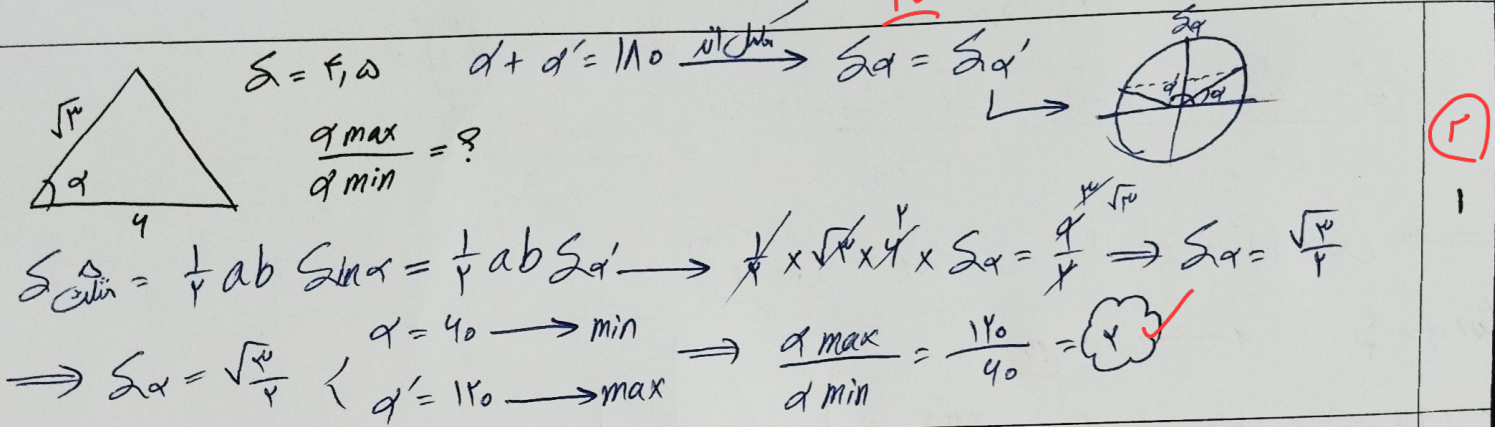 S = ۴,۵    α + α′ = ۱۸۰ ⟶ Sα = Sα′    Sα
√۳    α′    α
α max / α min = ?    ۲
α
۶    ۱
S مثلث = ۱/۲ ab Sin α = ۱/۲ ab Sα′ ⟶ ۱/۲ × √۳ × ۶ ۲ × Sα = ۹/۲ ۳ √۳ ⟹ Sα = √۳/۲
⟹ Sα = √۳/۲ < α = ۶۰ ⟶ min
α′ = ۱۲۰ ⟶ max
⟹ α max / α min = ۱۲۰/۶۰ = ۲ ✓